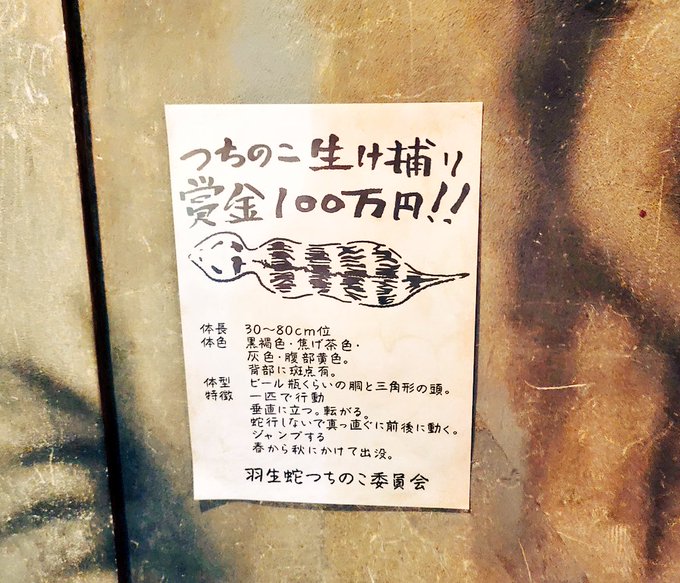 つちのこ生け捕り
賞金100万円!!
体長 30〜80cm位
体色 黒褐色・焦げ茶色・
灰色・腹部黄色。
背部に斑点有。
体型 ビール瓶くらいの胴と三角形の頭。
特徴 一匹で行動
垂直に立つ。転がる。
蛇行しないで真っ直ぐに前後に動く。
ジャンプする
春から秋にかけて出没。
羽生蛇つちのこ委員会